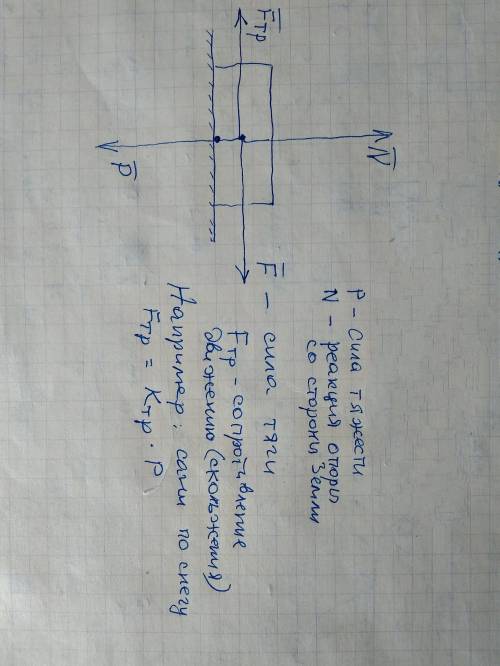 F̅тр
N̅
P̅
F̅ - сила тяги
P - Сила тяжести
N - реакция опоры
со стороны Земли
Fтр - сопротивление
движению (скольжения)
Например: сани по снегу
Fтр = Kтр · P